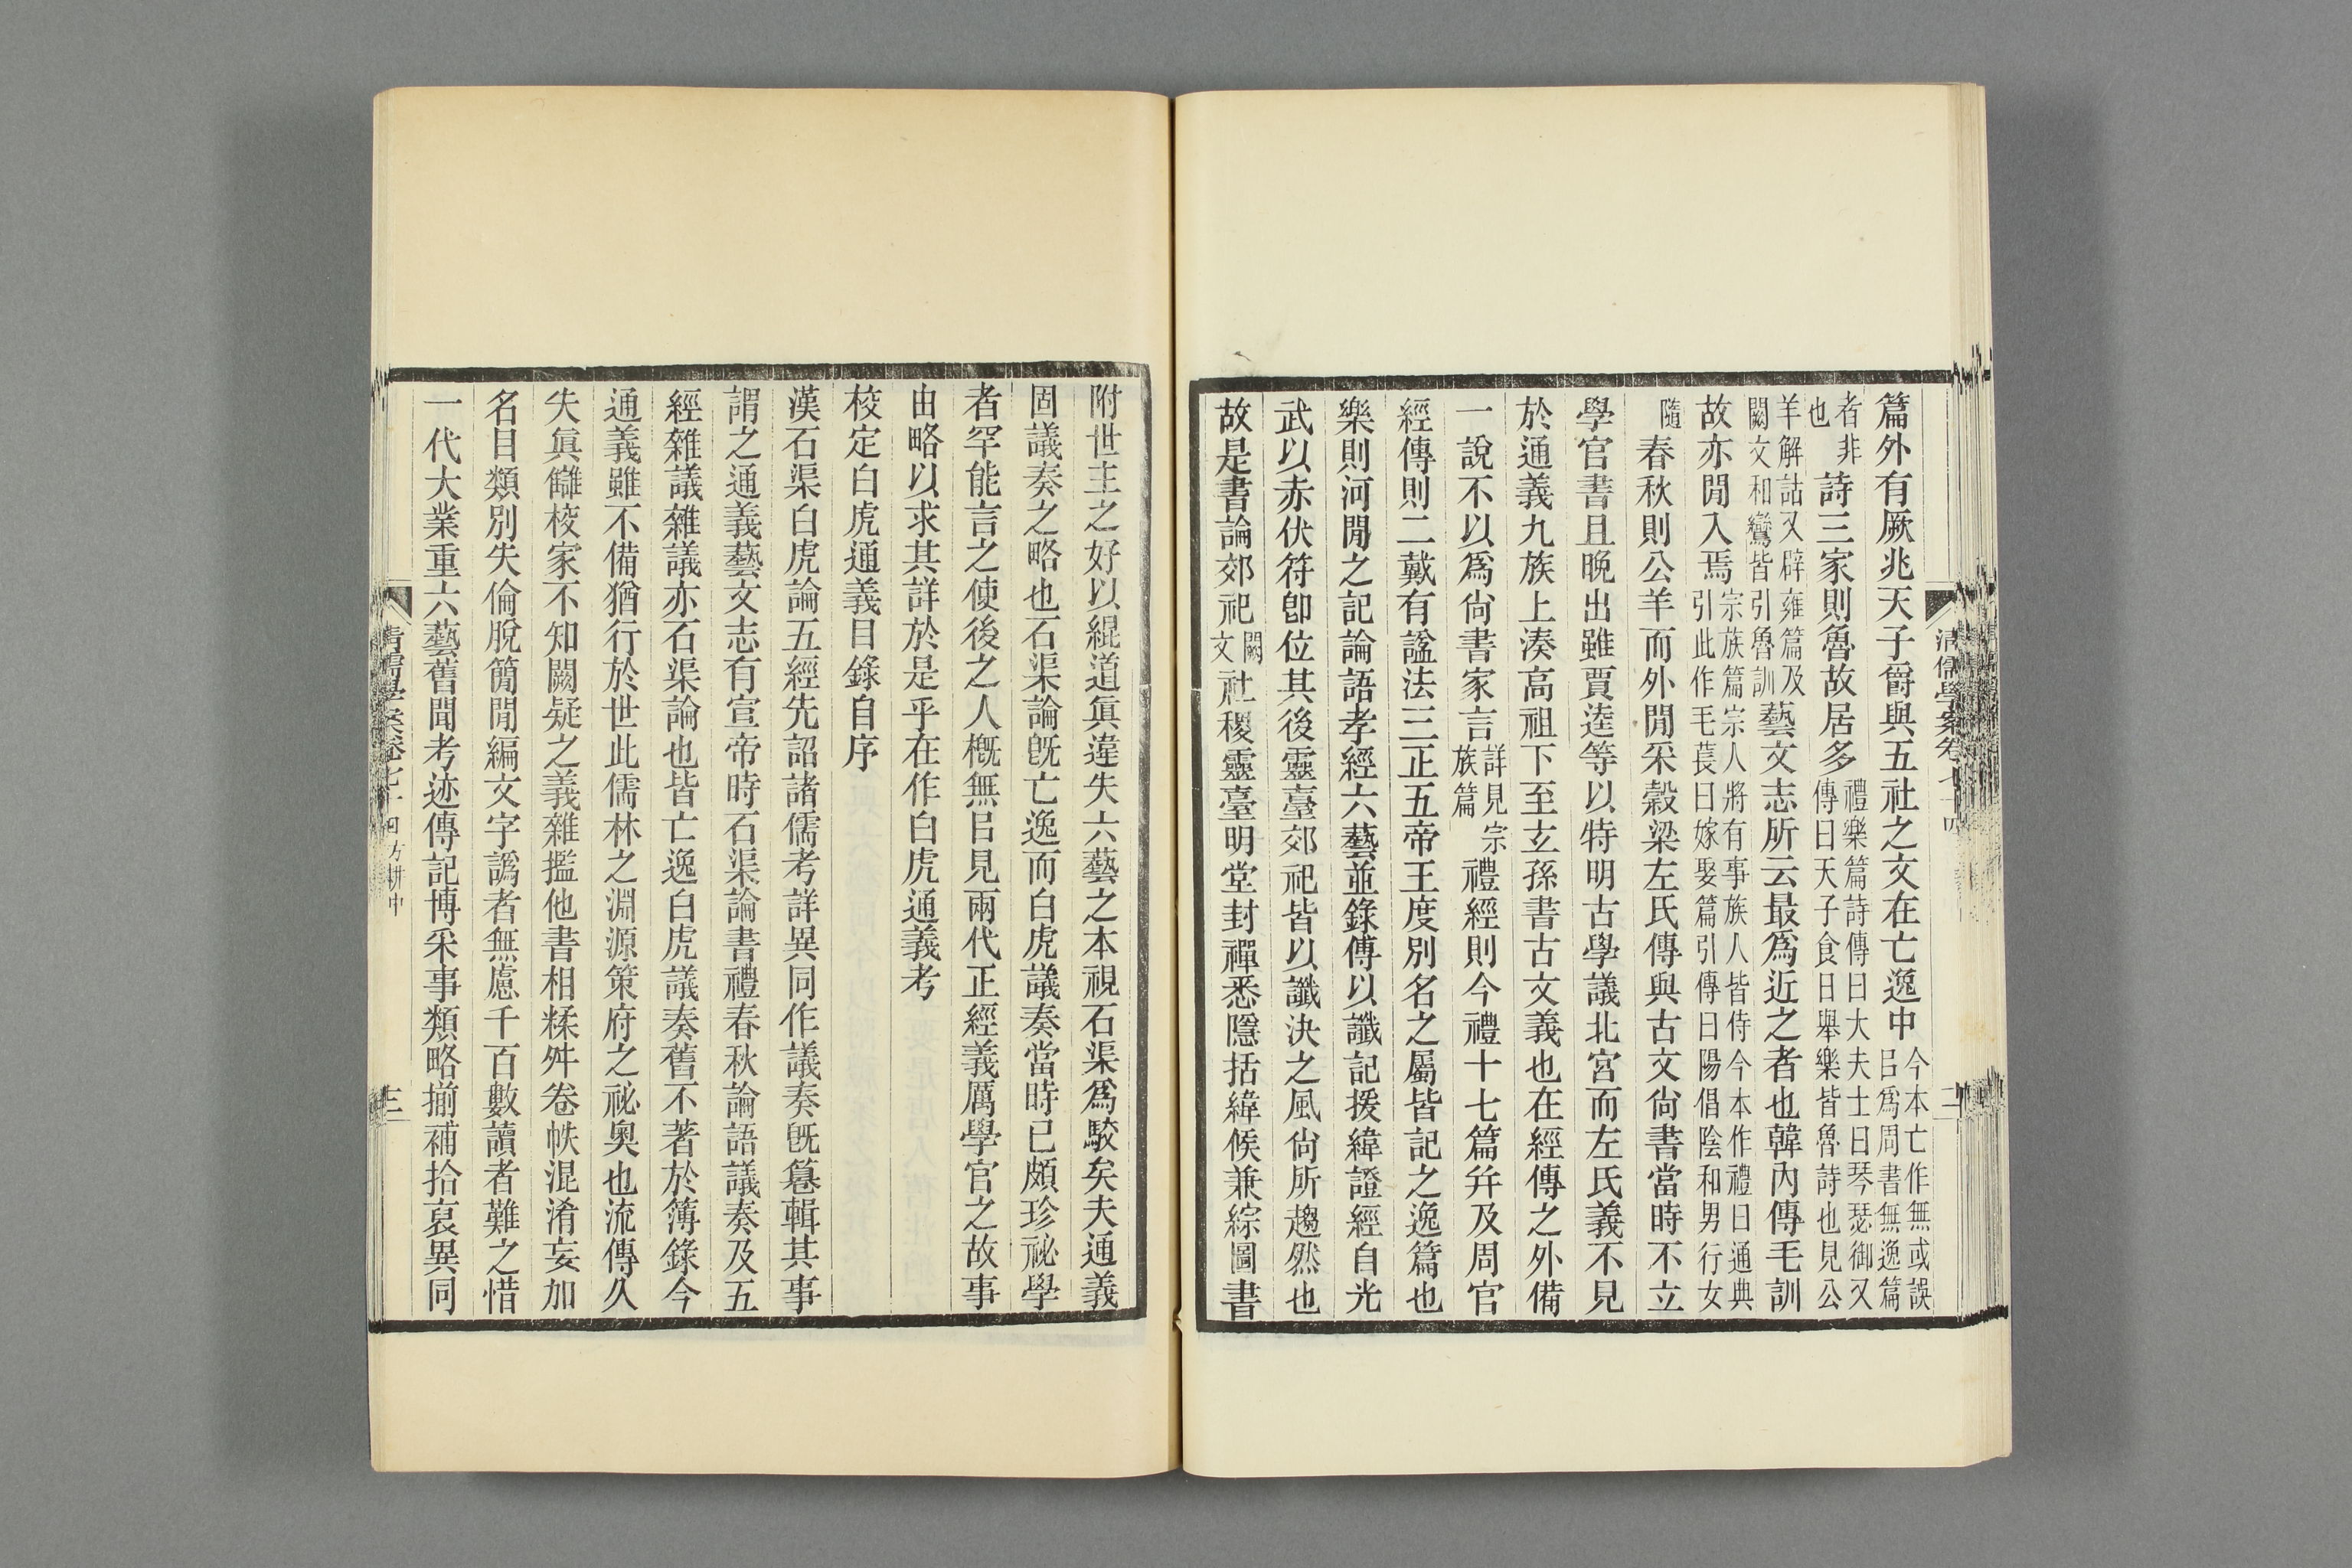 篇外有厥兆天子爵與五社之文在亡逸中今本亡作無或誤㠯爲周書無逸篇
者非也詩三家則魯故居多禮樂篇詩傳曰大夫士日琴瑟御又傳曰天子食日舉樂皆魯詩也見公
羊解詁又辟雍篇及闕文和鸞皆引魯訓藝文志所云最爲近之者也韓內傳毛訓
故亦閒入焉宗族篇宗人將有事族人皆侍今本作禮曰通典引此作毛萇曰嫁娶篇引傳曰陽倡陰和男行女
隨春秋則公羊而外閒采穀梁左氏傳與古文尙書當時不立
學官書且晚出雖賈逵等以特明古學議北宮而左氏義不見
於通義九族上湊高祖下至玄孫書古文義也在經傳之外備
一說不以爲尙書家言詳見宗族篇禮經則今禮十七篇幷及周官
經傳則二戴有謚法三正五帝王度別名之屬皆記之逸篇也
樂則河閒之記論語孝經六藝並錄傅以讖記援緯證經自光
武以赤伏符卽位其後靈臺郊祀皆以讖決之風尙所趨然也
故是書論郊祀闕文社稷靈臺明堂封禪悉隱括緯候兼綜圖書
清儒學案卷七十四
二
附世主之好以緄道眞違失六藝之本視石渠爲駮矣夫通義
固議奏之略也石渠論旣亡逸而白虎議奏當時已頗珍祕學
者罕能言之使後之人槪無㠯見兩代正經義厲學官之故事
由略以求其詳於是乎在作白虎通義考
校定白虎通義目錄自序
漢石渠白虎論五經先詔諸儒考詳異同作議奏旣篹輯其事
謂之通義藝文志有宣帝時石渠論書禮春秋論語議奏及五
經雜議雜議亦石渠論也皆亡逸白虎議奏舊不著於簿錄今
通義雖不備猶行於世此儒林之淵源策府之祕奧也流傳久
失眞讎校家不知闕疑之義雜㩜他書相糅舛卷帙混淆妄加
名目類別失倫脫簡閒編文字譌者無慮千百數讀者難之惜
一代大業重六藝舊聞考迹傳記博采事類略揃補拾裒異同
清儒學案卷七十四方耕中
三